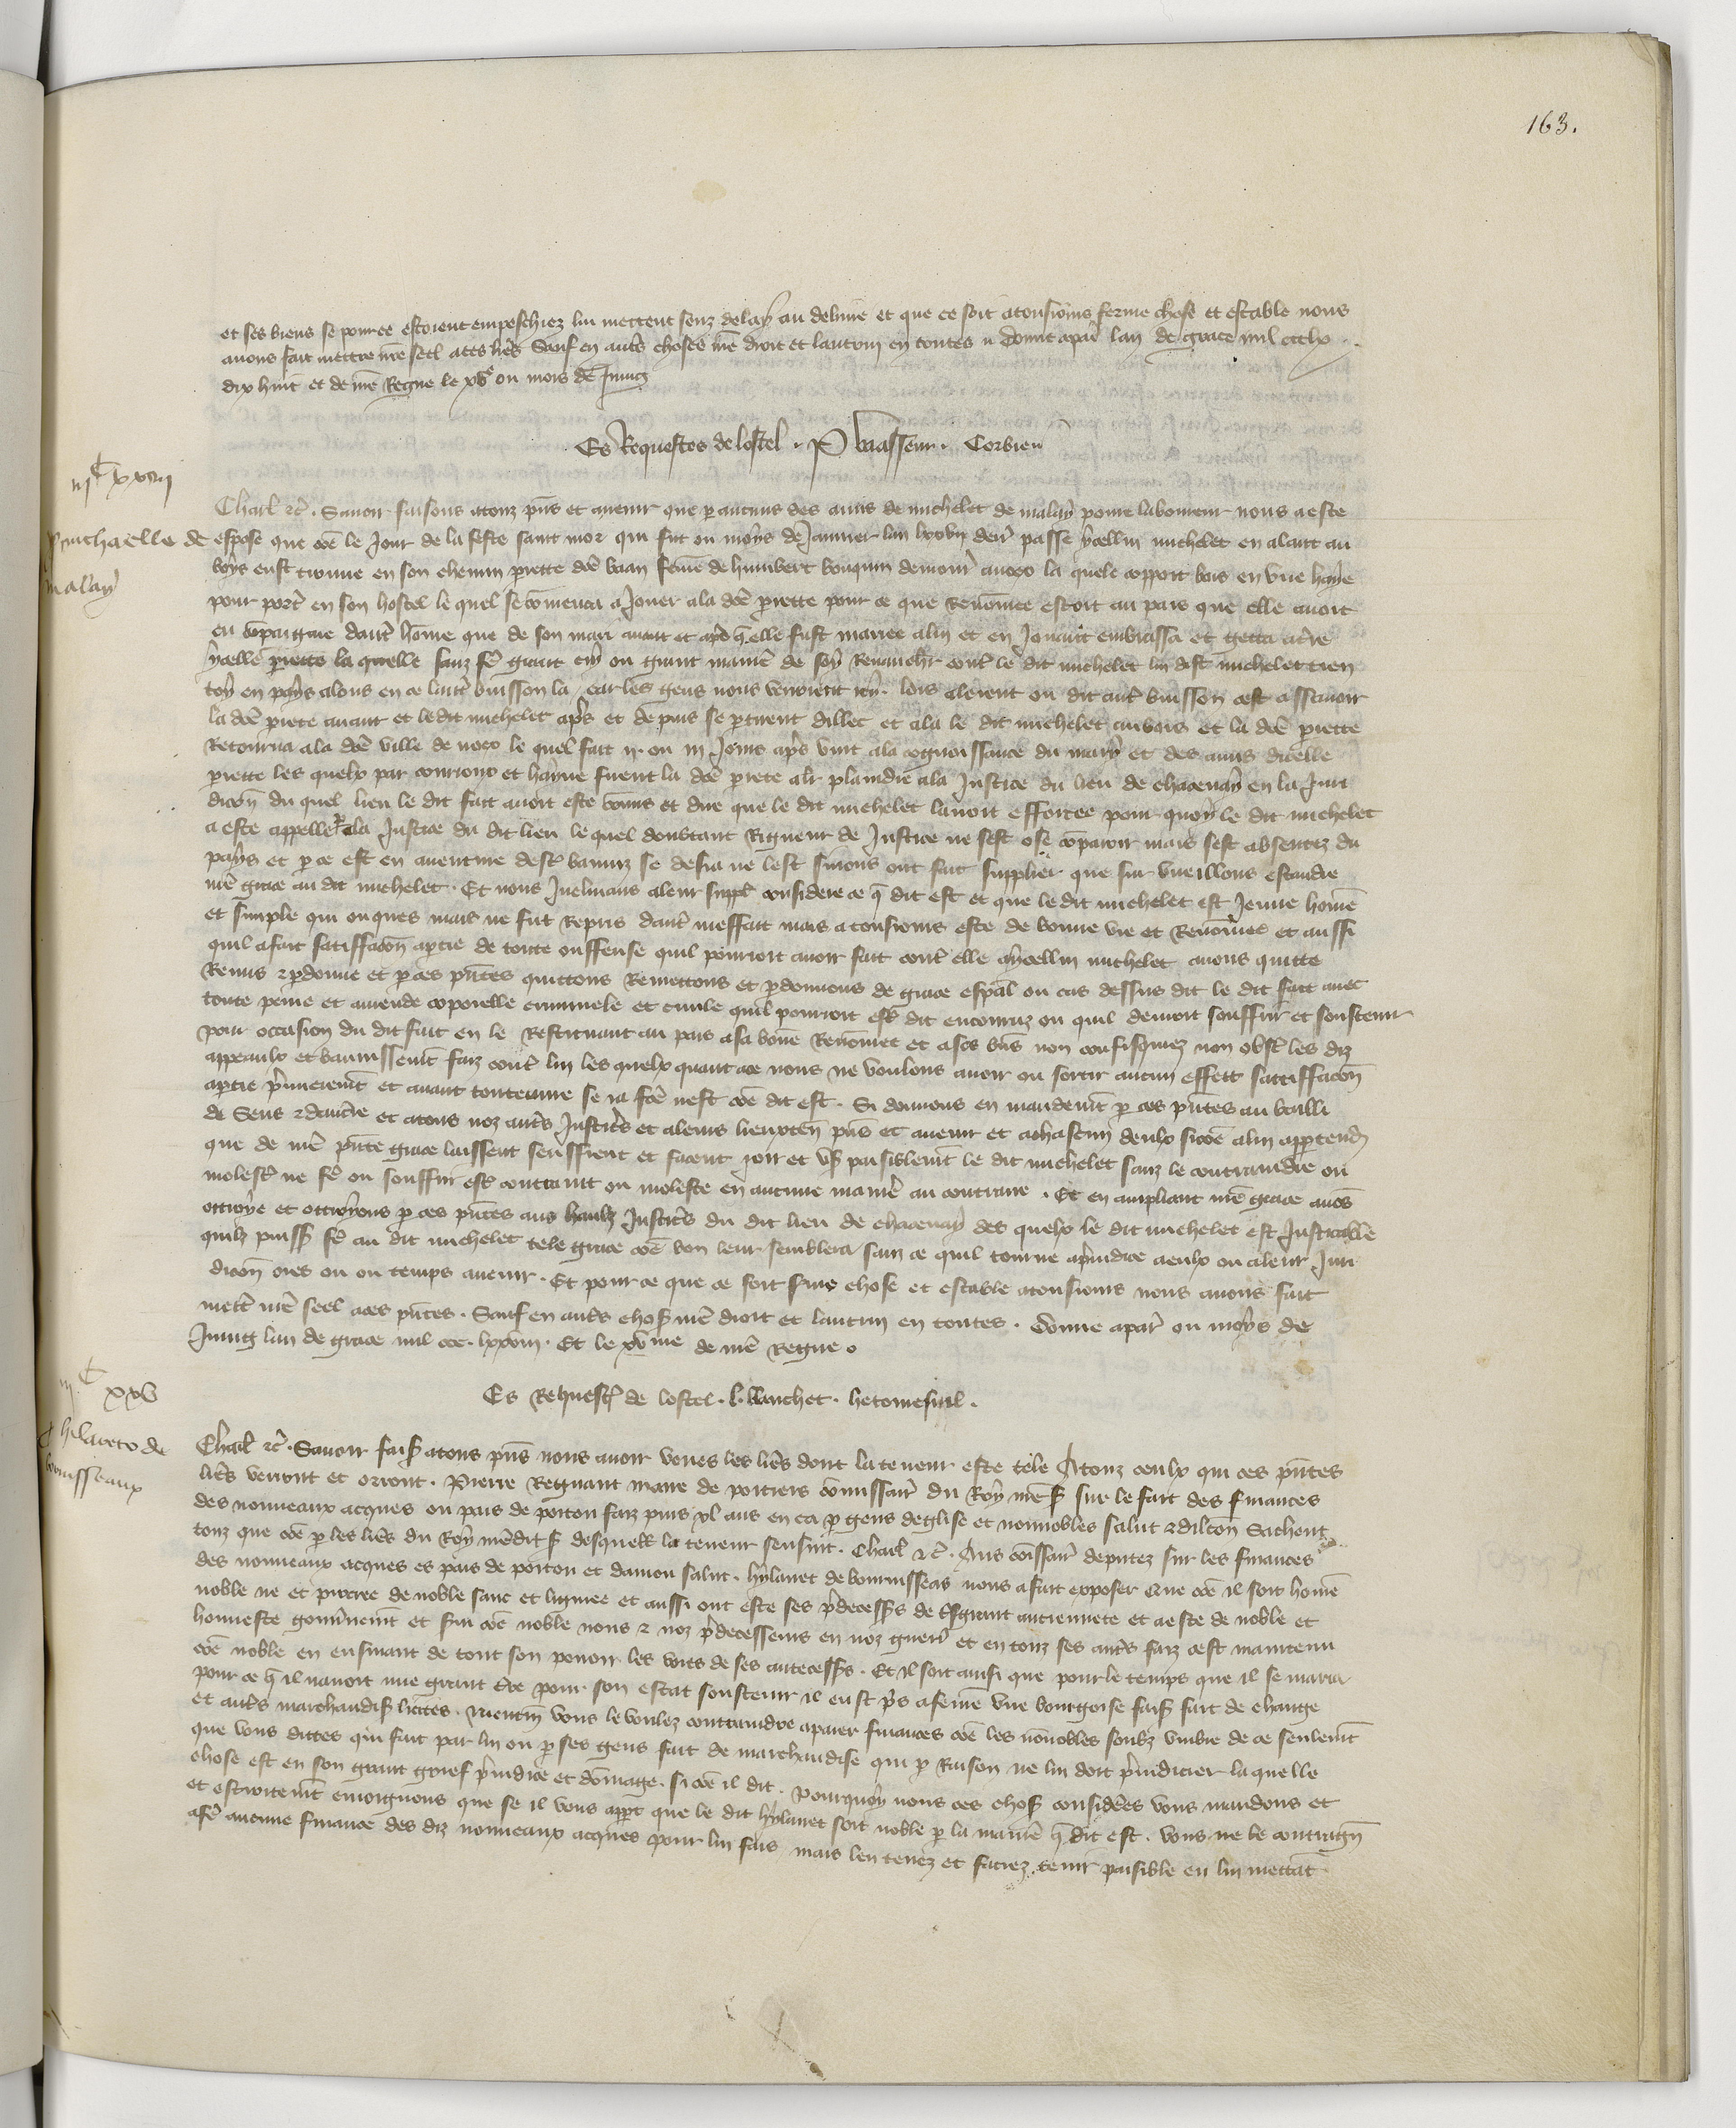 163.
et ses biens se pour ce estoient empeschiez lui mettent senz delay au delivre et que ce soit atousiours ferme chose et estable nous
avons fait mettre nre seel a ces lres Sauf en autres choses nre droit et lautruy en toutes Donne apar lan de grace mil ccclx
dix huit et de nre Regne le xve ou mois de Juing
Es Requestes de lostel . P Vasseur . Corbien
iijC xxiiij
Charl etc . Savoir faisons atouz pns et avenir que par aucuns des amis de michelet de malay povre laboureur nous a este
Michaelle de
expose que coe le Jour de la feste saint mor qui fut ou moys de Janvier lan lxxvij derr passe ycellui michelet en alant au
malay
boys eust trouve en son chemin perrette dce femme de humbert demour la quele coppoit bois en une haye
pour port en son hostel le quel se comenca a Jouer a la dce perrette pour ce que Renomee estoit au pais que elle avoit
eu compaignie dautre home que de son mari avant et apres q elle fust mariee a lui et en Jouant embrassa et getta aterre
ycelle perrette la quelle sanz fe grant cry ou grant maniere de soy Revencher cont le dit michelet lui dist michelet tien
toy en pays alons en ce lautre buisson la car les gens nous verroient icy . lors alerent ou dit autre buisson cest assavoir
la dce perrete avant et le dit michelet apres et depuis se partirent dillec et ala le dit michelet au bois et la dce perrette
Retourna a la dce ville de le quel fait ij ou iij Jours apres vint a la cognoissance du mary et des amis dicelle
perrette les quelx par courroux et hayne firent la dce perrete aler plaindre a la Justice du lieu de chacenay en la Juri
dicon du quel lieu le dit fait avoit este comis et dire que le dit michelet lavoit efforcee pour quoy le dit michelet
a este appelle a la Justice du dit lieu le quel doubtant Rigueur de Justice ne sest ose comparoir mais sest absentez du
pays et par ce est en aventure dest banniz se desia ne lest si nous ont fait supplier que sur vueillons estandre
nre grace au dit michelet . Et nous Inclinans a leur suppl considere ce q dit est et que le dit michelet est Jeune home
et simple qui onques mais ne fut Repris dautre meffait mais a tousiours este de bonne vie et Renomee et aussi
quil a fait satisfacon a partie de toute ouffense quil pourroit avoir fait cont elle a ycellui michelet avons quitte
Remis et pardonne et par ces pntes quittons Remettons et pardonnons de grace espal ou cas dessus dit le dit fait avec
toute peine et amende corporelle criminele et civile quil pourroit est dit encouruz ou quil devroit souffrir et soustenir
pour occasion du dit fait en le Restituant au pais a sa bonne Renomee et a ses bns non confisquiez non obst les diz
appeaulx et bannissemt faiz cont lui les quelx quant a ce nous ne voulons avoir ou sortir aucun effett sattiffacon
a partie prmierement et avant toute euvre se ja fce nest coe dit est . Si donnons en mandemt par ces pntes au bailli
de Sens et daucerre et a tous noz autres Justiciers et a leurs lieuxten pns et avenir et a chascun deulx sicoe a lui appertendr
que de nre pnte grace laissent seuffrent et facent joir et us paisiblemt le dit michelet sanz le contraindre ou
molest ne fe ou souffrir est contraint ou moleste en aucune maniere au contraire . Et en ampliant nre grace avons
ottroye et ottroyons par ces pntes aus haulz Justiciers du dit lieu de chacenay des quelx le dit michelet est Justicable
quilz puiss fe au dit michelet tele grace coe bon leur semblera sanz ce quil tourne a preiudice a eulx ou a leur Juri
dicon ores ou ou temps avenir . Et pour ce que ce soit ferme chose et estable a tousiours nous avons fait
mett nre seel a ces pntes . Sauf en autres chos nre droit et lautrui en toutes . Donne a par ou moys de
Juing lan de grace mil ccc . lxxviij . Et le xvme de nre Regne .
Es Request de lostel . l . blanchet . hetomesnil .
iijC xxv
Charl etc . Savoir fais a tous pns nous avoir veues les lres dont la teneur este tele A touz ceulx qui ces pntes
Hilareto de
bourisseaux
lres verront et orront . Pierre Regnaut maire de poitiers comissaire du Roy nre s sur le fait des finances
des nouveaux acques ou pais de poitou faiz puis xl ans en ca par gens deglise et nonnobles salut et dilcon Sachent
touz que coe par les lres du Roy nredit s desquell la teneur sensuit . Charl etc . Aus comissaires deputez sur les finances
des nouveaux acques es pais de poitou et daniou salut . hylairet de bourrisseas nous a fait exposer Que coe il soit home
noble ne et procree de noble sanc et lignee et aussi ont este ses predecess de si grant anciennete et a este de noble et
honneste gouvnemt et servi coe noble nous et noz predecesseurs en noz guerr et en touz ses autres faiz cest maintenu
coe noble en ensuivant de tout son povoir les vots de ses antecess . Et il soit ainsi que pour le temps que il se maria
pour ce q il navoit mie grant chose pour son estat soustenir il eust pris a feme une bourgoise fais fait de change
et autres marchandis licites . Nientm vous le voulez contraindre a paier finances coe les nonnobles soubz umbre de ce seulemt
que vous dittes qui fait par lui ou par ses gens fait de marchandise qui par Raison ne lui doit preiudicier la quelle
chose est en son grant grief preiudice et domage . si coe il dit . Pourquoy nous ces chos considerees vous mandons et
et estroitemt enioignons que se il vous appt que le dit hylairet soit noble par la maniere q dit est . vous ne le contraign
a fe aucune finance des diz nouveaux acques pour lui fais mais len tenez et faciez tenir paisible en lui mettat